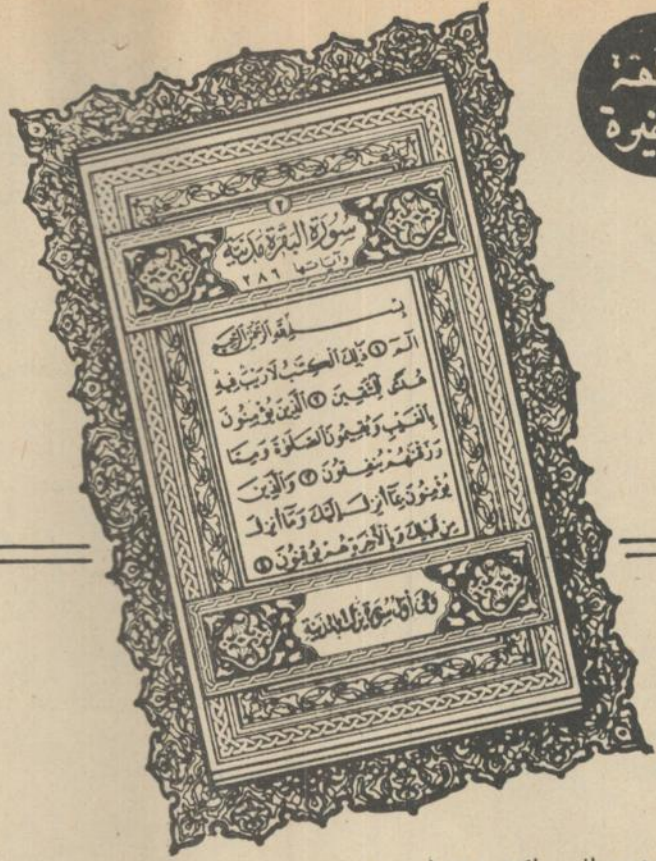 ٢
سُورَةُ البَقَرَةِ مَدَنِيَّة
وآياتها ٢٨٦
بِسْمِ اللَّهِ الرَّحْمَنِ الرَّحِيمِ
الٓمٓ ١ ذَٰلِكَ ٱلْكِتَٰبُ لَا رَيْبَ فِيهِ
هُدًى لِّلْمُتَّقِينَ ٢ ٱلَّذِينَ يُؤْمِنُونَ
بِٱلْغَيْبِ وَيُقِيمُونَ ٱلصَّلَوٰةَ وَمِمَّا
رَزَقْنَٰهُمْ يُنفِقُونَ ٣ وَٱلَّذِينَ
يُؤْمِنُونَ بِمَآ أُنزِلَ إِلَيْكَ وَمَآ أُنزِلَ
مِن قَبْلِكَ وَبِٱلْأَخِرَةِ هُمْ يُوقِنُونَ ٤
وهي أول سورة نزلت بالمدينة